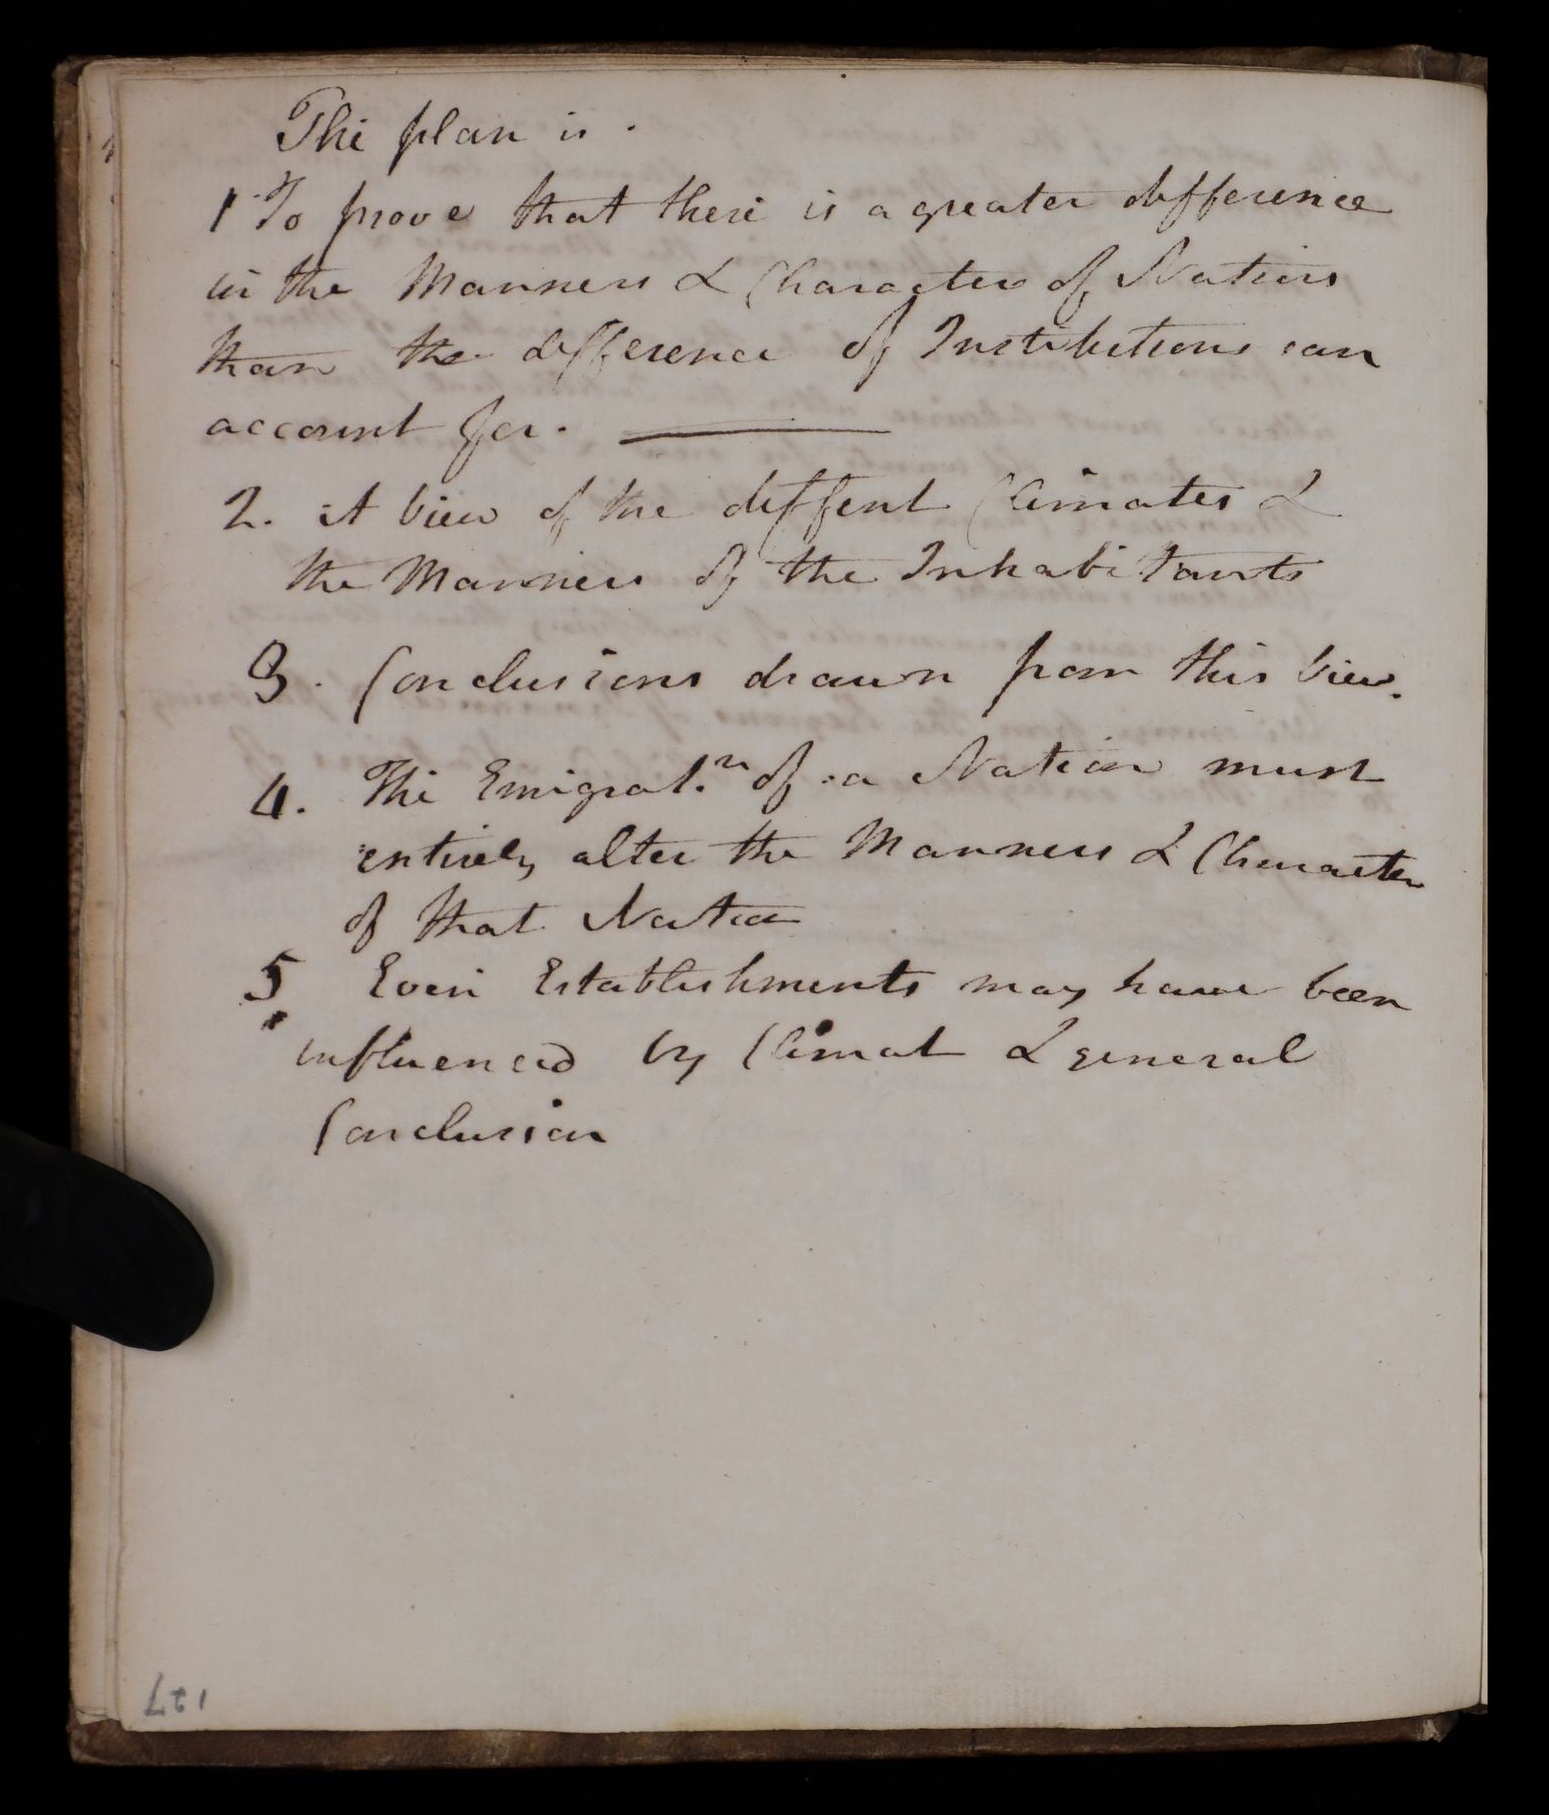 The plan is.
1 To prove that there is a greater difference
in the Manners & Character of Nations
than the difference of Institutions can
account for.
2. A View of the diffent Climates &
the Manners of the Inhabitants
3. Conclusions drawn from this View.
4. The Emigrat.n of a Nation must
entirely alter the Manners & Character
of that Nation
5. Even Establishments may have been
influenced by Climat & general
Conclusion
127